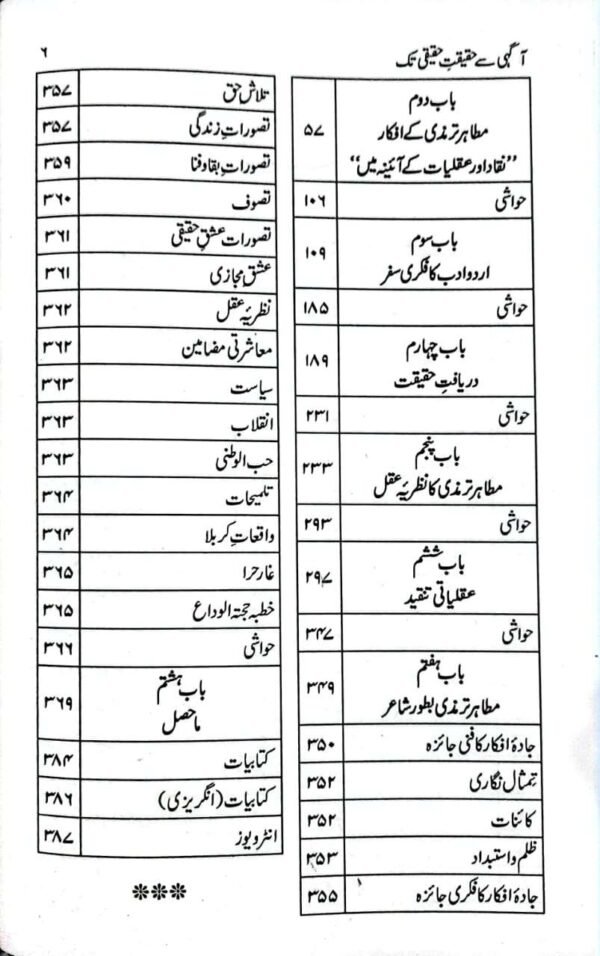 آگہی سے حقیقتِ حقیقی تک
۶
باب دوم
مطاہر ترمذی کے افکار
”نقاد اور عقلیات کے آئینہ میں“
۵۷
حواشی ۱۰۶
باب سوم
اردو ادب کا فکری سفر
۱۰۹
حواشی ۱۸۵
باب چہارم
دریافتِ حقیقت
۱۸۹
حواشی ۲۳۱
باب پنجم
مطاہر ترمذی کا نظریۂ عقل
۲۳۳
حواشی ۲۹۳
باب ششم
عقلیاتی تنقید
۲۹۷
حواشی ۳۴۷
باب ہفتم
مطاہر ترمذی بطور شاعر
۳۴۹
جادۂ افکار کا فنی جائزہ ۳۵۰
تمثال نگاری ۳۵۲
کائنات ۳۵۲
ظلم و استبداد ۳۵۳
جادۂ افکار کا فکری جائزہ ۳۵۵
تلاشِ حق ۳۵۷
تصوراتِ زندگی ۳۵۷
تصوراتِ بقا و فنا ۳۵۹
تصوف ۳۶۰
تصورات عشقِ حقیقی ۳۶۱
عشق مجازی ۳۶۱
نظریۂ عقل ۳۶۲
معاشرتی مضامین ۳۶۲
سیاست ۳۶۳
انقلاب ۳۶۳
حب الوطنی ۳۶۳
تلمیحات ۳۶۴
واقعاتِ کربلا ۳۶۴
غار حرا ۳۶۵
خطبہ حجتہ الوداع ۳۶۵
حواشی ۳۶۶
باب ہشتم
ماحصل
۳۶۹
کتابیات ۳۸۴
کتابیات (انگریزی) ۳۸۶
انٹرویوز ۳۸۷
***